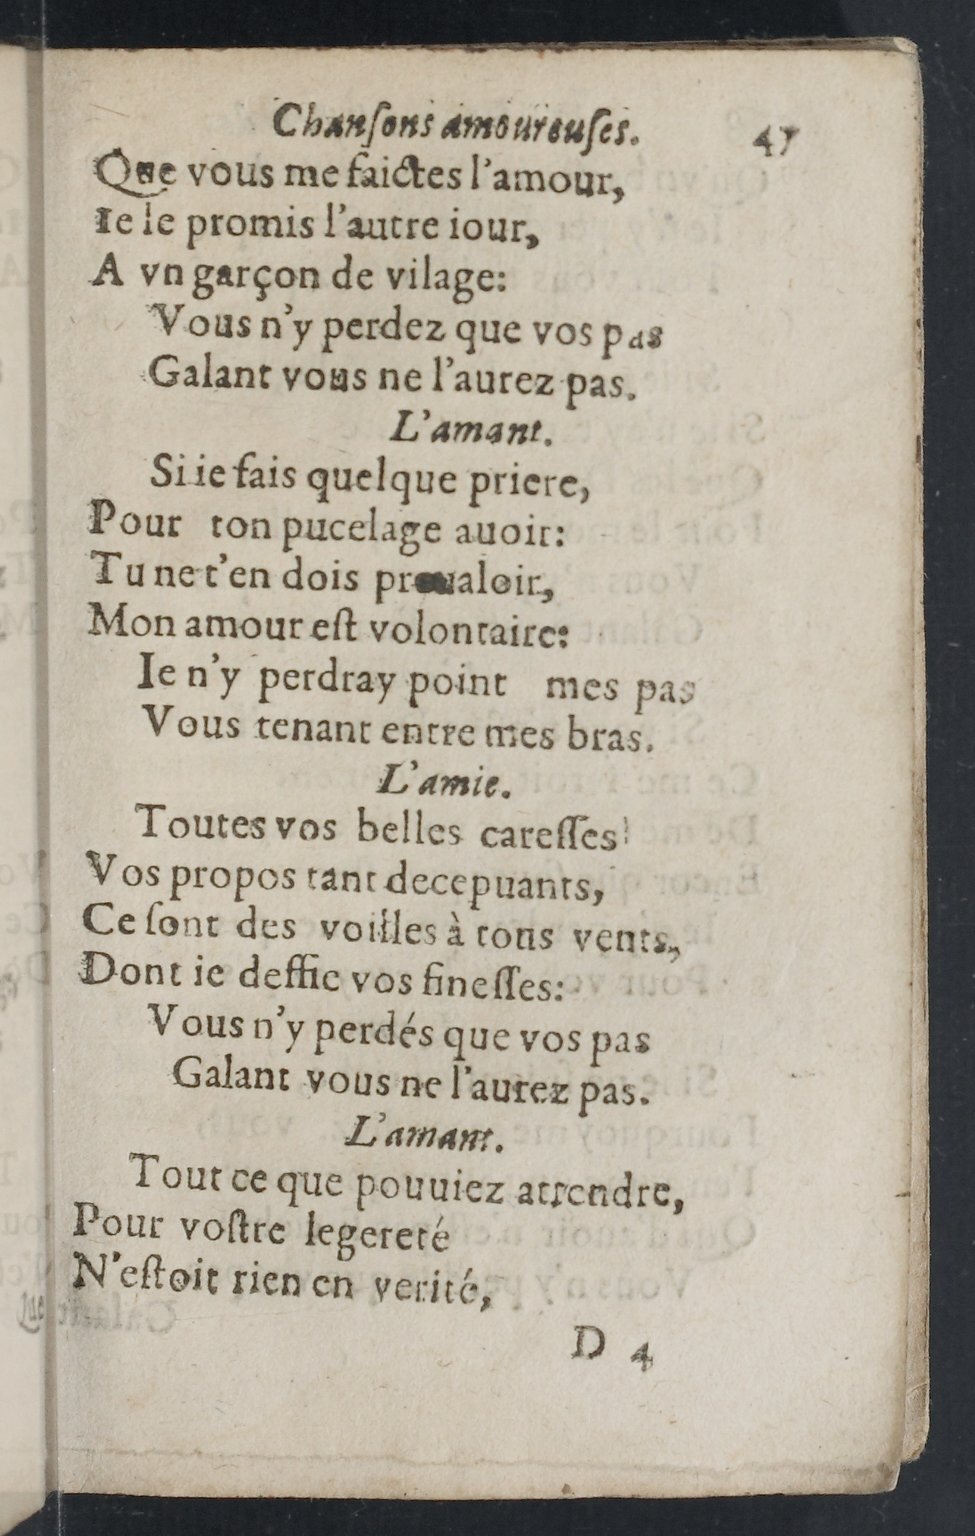 Chanſons amoureuſes. 47
Que vous me faictes l'amour,
Ie le promis l'autre iour,
A vn garçon de vilage:
Vous n'y perdez que vos pas
Galant vous ne l'aurez pas.
L'amant.
Si ie fais quelque priere,
Pour ton pucelage auoir:
Tu ne t'en dois preualoir,
Mon amour eſt volontaire:
Ie n'y perdray point mes pas
Vous tenant entre mes bras.
L'amie.
Toutes vos belles careſſes
Vos propos tant decepuants,
Ce ſont des voilles à tous vents,
Dont ie deffie vos fineſſes:
Vous n'y perdés que vos pas
Galant vous ne l'aurez pas.
L'amant.
Tout ce que pouuiez attendre,
Pour voſtre legereté
N'eſtoit rien en verité,
D 4